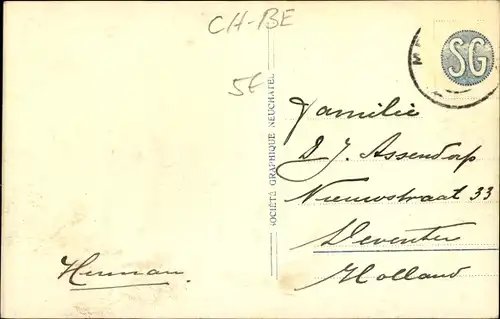 CH-BE
5€
SG
SOCIÉTÉ GRAPHIQUE NEUCHATEL
Familie
D J. Assendorp
Nieuwstraat 33
Deventer
Holland
Herman.